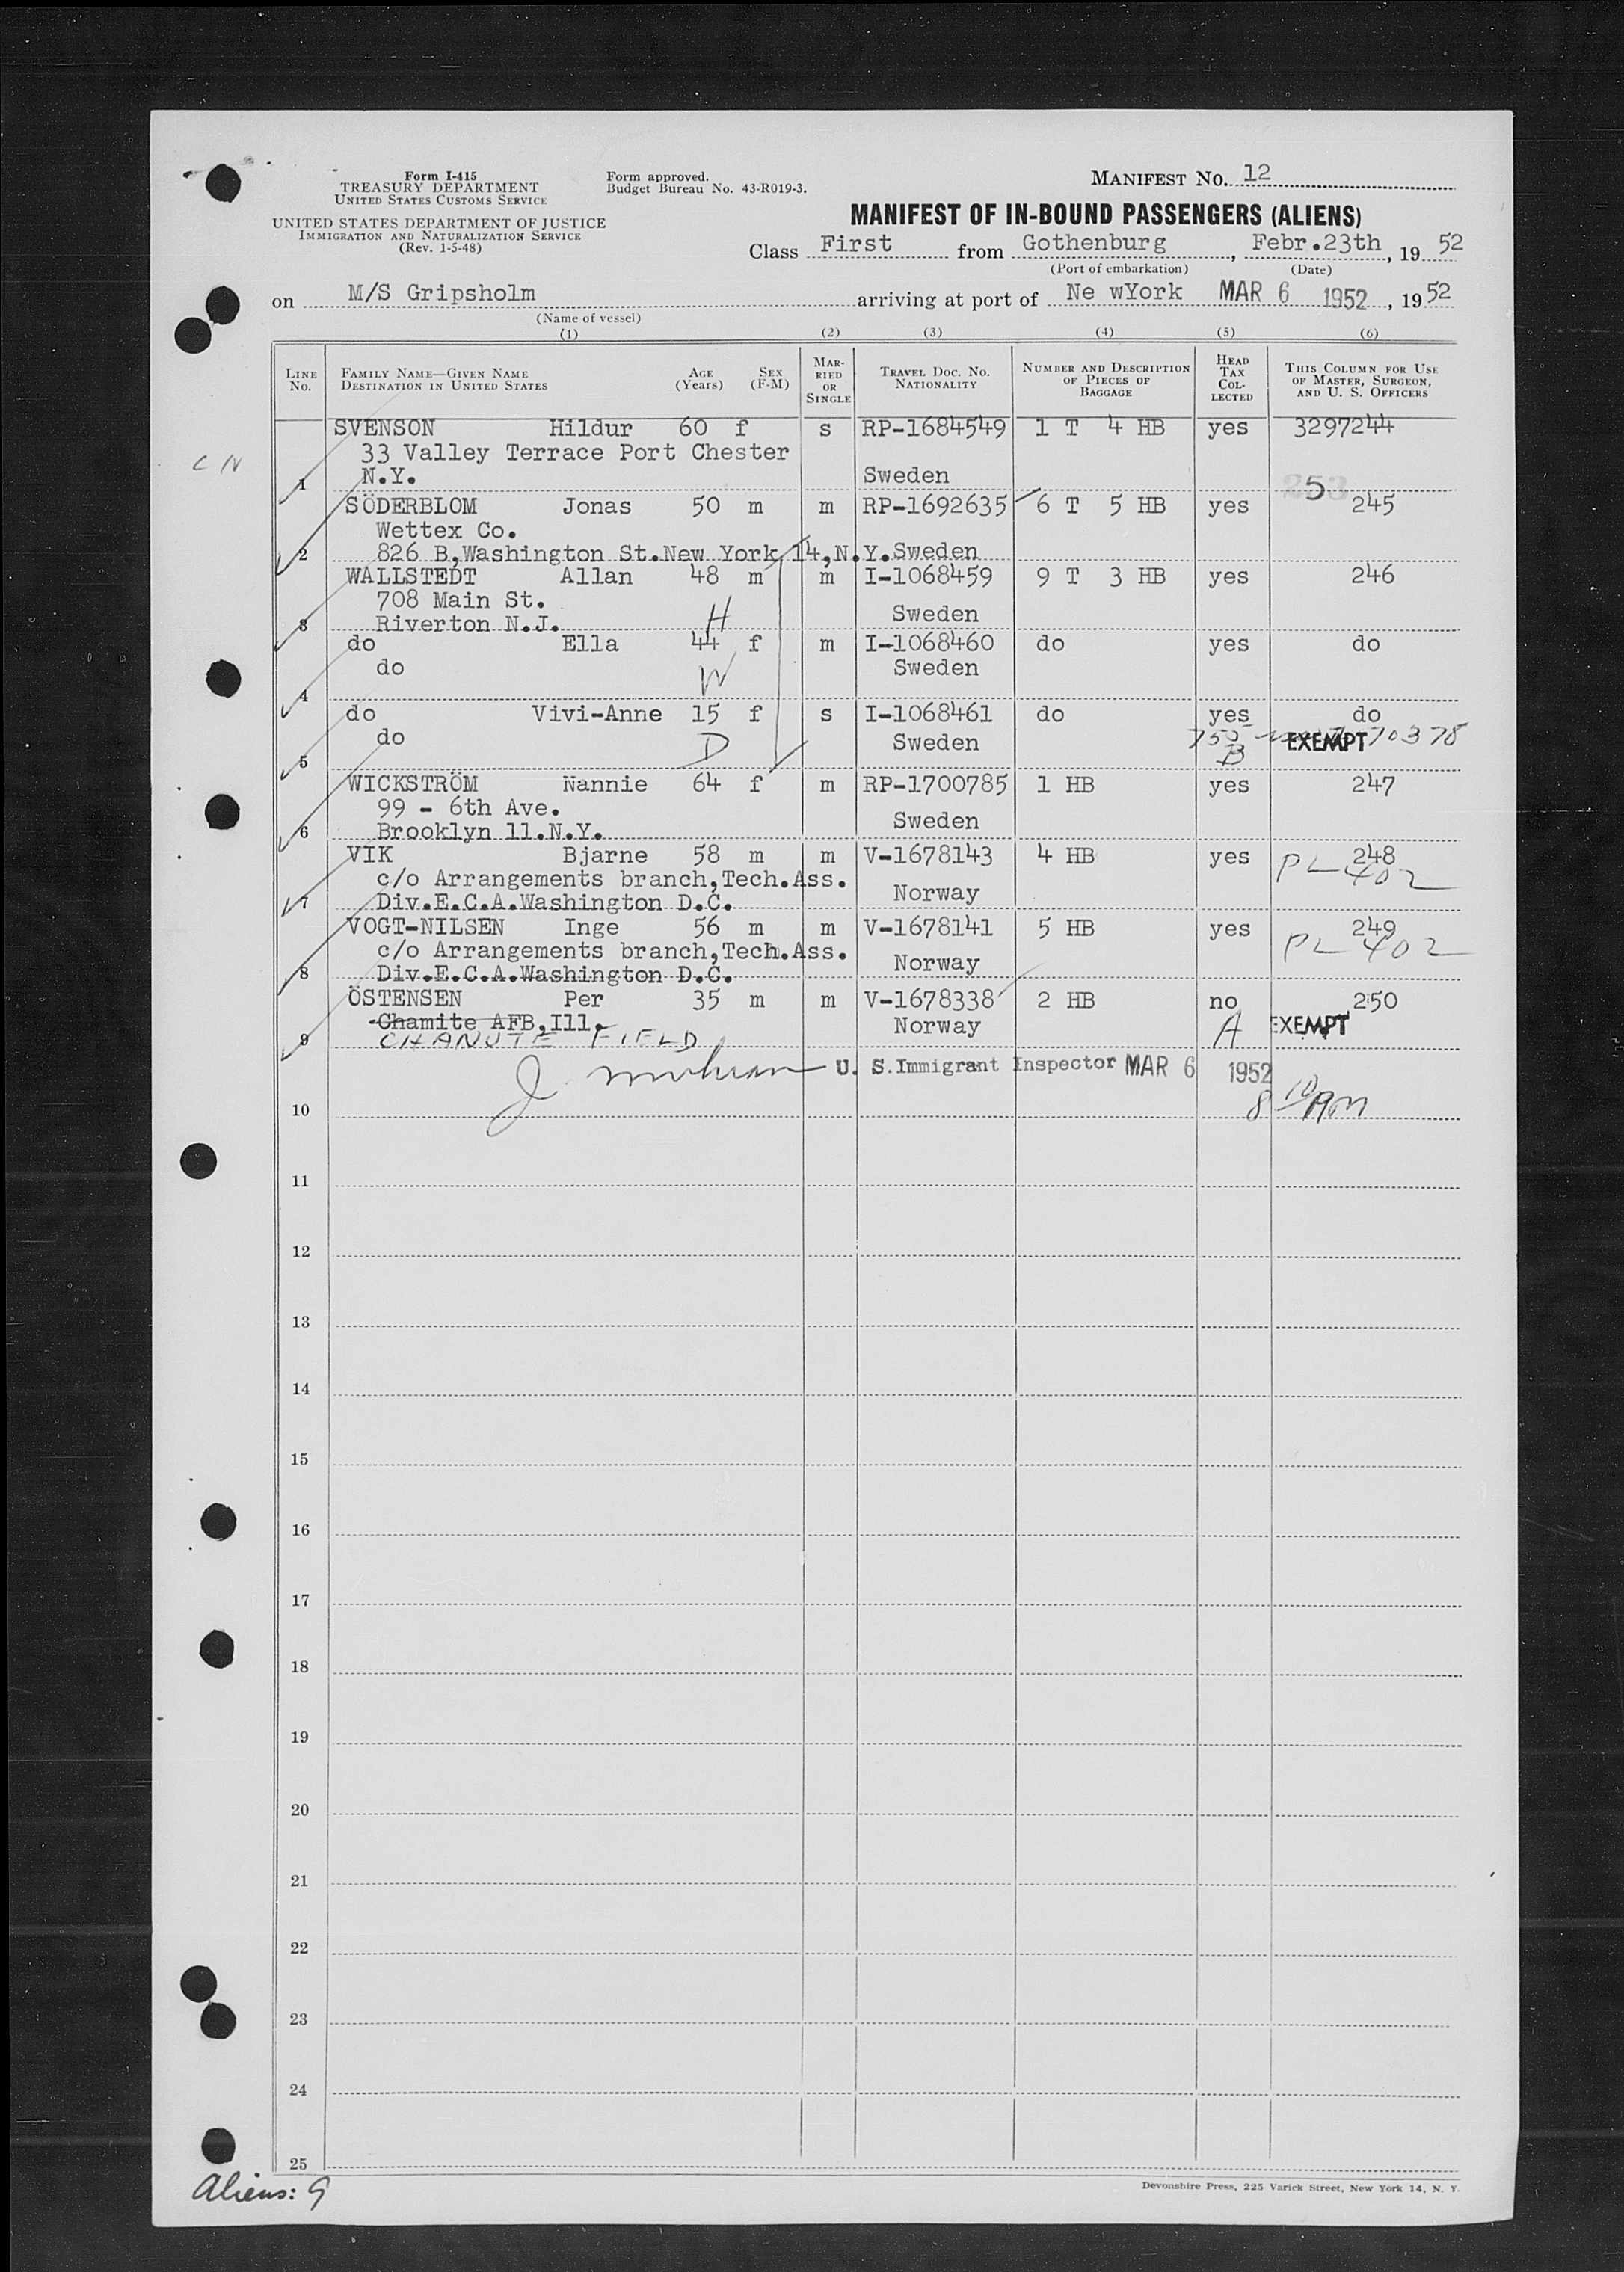 Form I-415
TREASURY DEPARTMENT
UNITED STATES CUSTOMS SERVICE
UNITED STATES DEPARTMENT OF JUSTICE
IMMIGRATION AND NATURALIZATION SERVICE
(Rev. 1-5-48)
Form approved.
Budget Bureau No. 43-R019-3.
MANIFEST NO. 12
MANIFEST OF IN-BOUND PASSENGERS (ALIENS)
Class First from Gothenburg, Febr.23th, 1952
(Port of embarkation) (Date)
on M/S Gripsholm arriving at port of Ne wYork MAR 6 1952, 1952
(Name of vessel)
(1) (2) (3) (4) (5) (6)
LINE NO. FAMILY NAME—GIVEN NAME DESTINATION IN UNITED STATES AGE (Years) SEX (F-M) MARRIED OR SINGLE TRAVEL DOC. NO. NATIONALITY NUMBER AND DESCRIPTION OF PIECES OF BAGGAGE HEAD TAX COLLECTED THIS COLUMN FOR USE OF MASTER, SURGEON, AND U. S. OFFICERS
SVENSON Hildur 60 f s RP-1684549 1 T 4 HB yes 3297244
C N 33 Valley Terrace Port Chester
1 N.Y. Sweden 5
SÖDERBLOM Jonas 50 m m RP-1692635 6 T 5 HB yes 245
Wettex Co.
2 826 B,Washington St.New York 14,N.Y.Sweden
WALLSTEDT Allan 48 m m I-1068459 9 T 3 HB yes 246
708 Main St. Sweden
3 Riverton N.J. H
do Ella 44 f m I-1068460 do yes do
do W Sweden
4
do Vivi-Anne 15 f s I-1068461 do yes do
do D Sweden B EXEMPT 70378
5
WICKSTRÖM Nannie 64 f m RP-1700785 1 HB yes 247
99 - 6th Ave. Sweden
6 Brooklyn 11.N.Y.
VIK Bjarne 58 m m V-1678143 4 HB yes 248
c/o Arrangements branch,Tech.Ass. Norway PL 402
7 Div.E.C.A.Washington D.C.
VOGT-NILSEN Inge 56 m m V-1678141 5 HB yes 249
c/o Arrangements branch,Tech.Ass. Norway PL 402
8 Div.E.C.A.Washington D.C.
ÖSTENSEN Per 35 m m V-1678338 2 HB no 250
Chamite AFB,Ill. Norway A EXEMPT
9 CHANUTE FIELD
U. S. Immigrant Inspector MAR 6 1952
10 8 10/PM
11
12
13
14
15
16
17
18
19
20
21
22
23
24
25
Aliens: 9
Devonshire Press, 225 Varick Street, New York 14, N. Y.